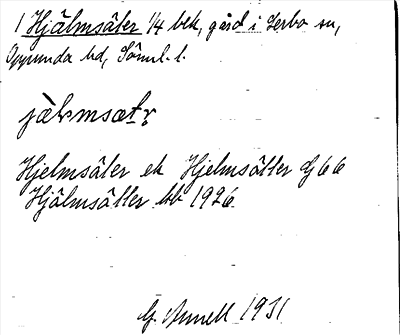 1 Hjälmsäter 1/4 bek, gård i Lerbo sn,
Oppunda hd, Söml. l.
jä̀lmsætr
Hjelmsäter ek Hjelmsätter Gj 66
Hjälmsätter bb 1926.
G. Annell 1931